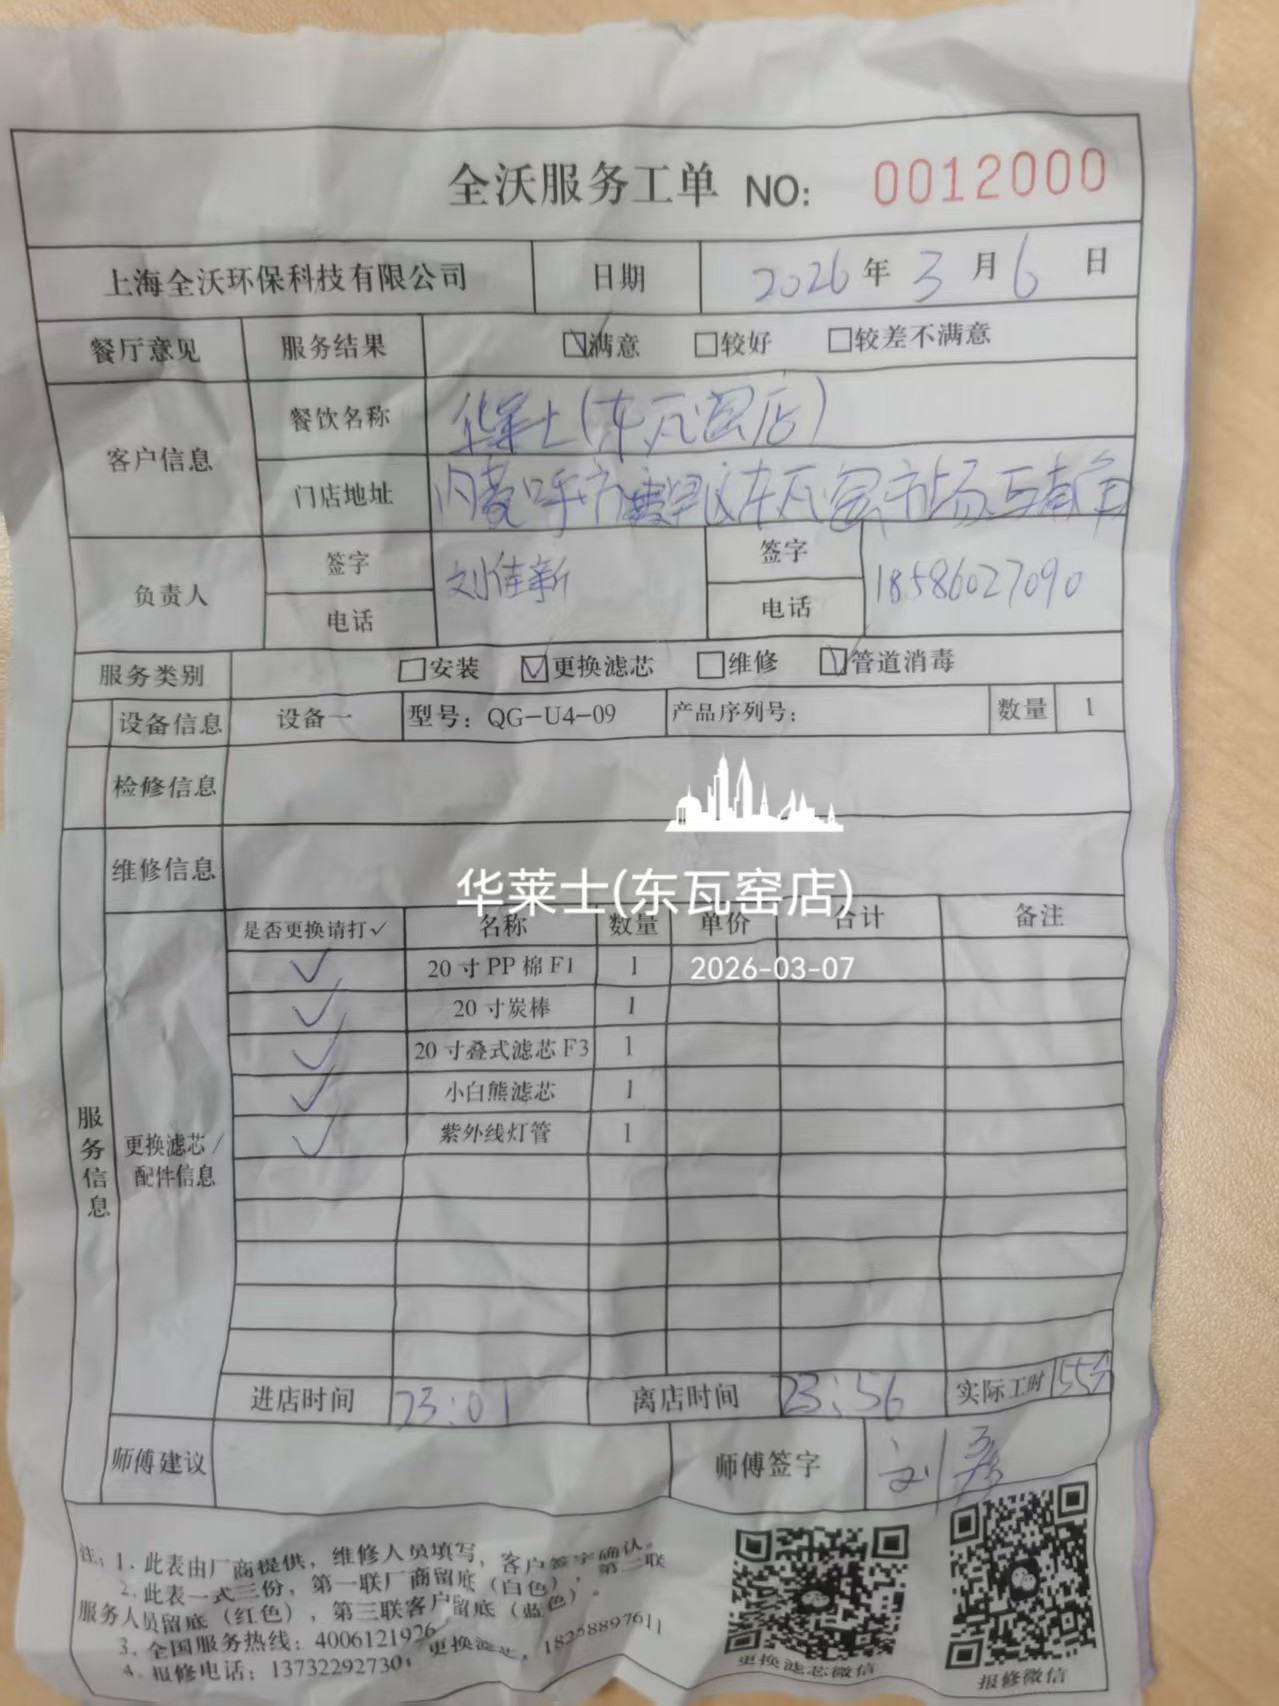 全沃服务工单 NO: 0012000
上海全沃环保科技有限公司 日期 2026年3月6日
餐厅意见 服务结果 ☑满意 □较好 □较差不满意
客户信息 餐饮名称 华莱士(东瓦窑店)
门店地址 内蒙呼市赛罕区东瓦窑市场东南角
负责人 签字 刘佳新 签字 18586027090
电话 电话
服务类别 □安装 ☑更换滤芯 □维修 ☑管道消毒
设备信息 设备一 型号：QG-U4-09 产品序列号： 数量 1
检修信息
维修信息
华莱士(东瓦窑店)
是否更换请打✓ 名称 数量 单价 合计 备注
✓ 20寸PP棉F1 1
2026-03-07
✓ 20寸炭棒 1
✓ 20寸叠式滤芯F3 1
✓ 小白熊滤芯 1
✓ 紫外线灯管 1
服务信息
更换滤芯/
配件信息
进店时间 23:01 离店时间 23:56 实际工时 55分
师傅建议 师傅签字 刘彦
注：1. 此表由厂商提供，维修人员填写，客户签字确认。
2. 此表一式三份，第一联厂商留底（白色），第二联
服务人员留底（红色），第三联客户留底（蓝色）。
3. 全国服务热线：4006121926
4. 报修电话：13732292730；更换滤芯，18258897611
更换滤芯微信
报修微信